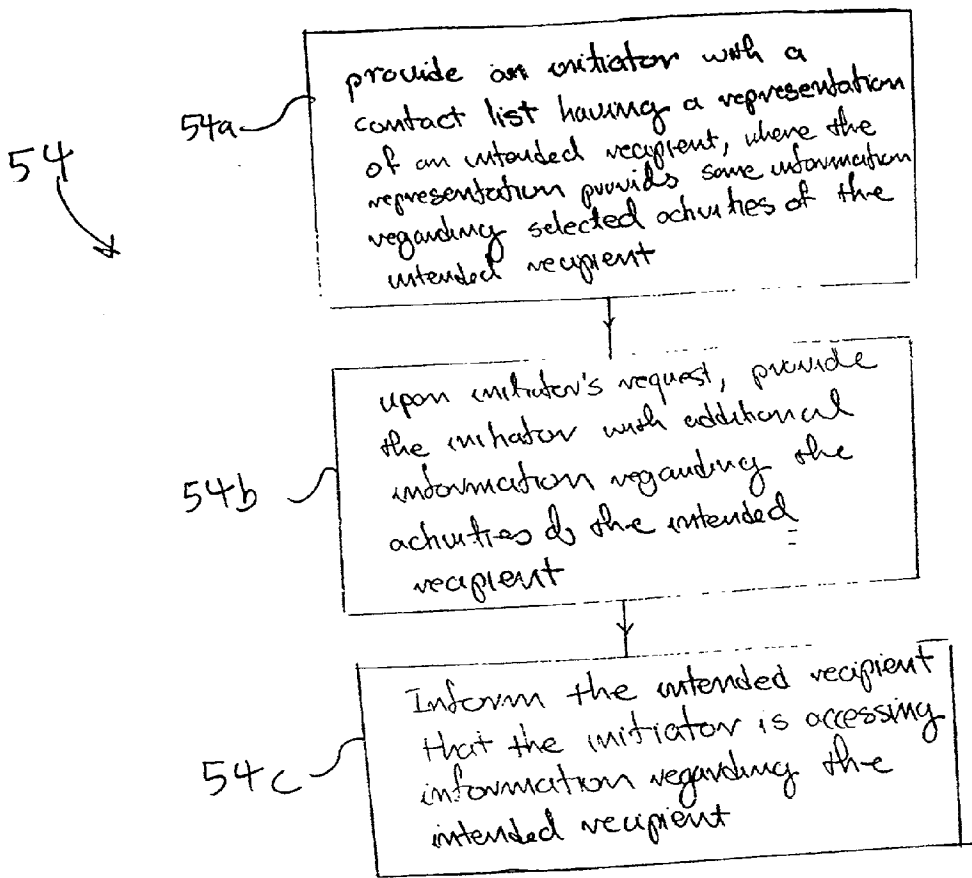 provide an initiator with a
contact list having a representation
of an intended recipient, where the
representation provids some information
regarding selected activities of the
intended recipient
54a
54
upon initiator's request, provide
the initiator with additional
information regarding the
activities of the intended
recipient
54b
Inform the intended recipient
that the initiator is accessing
information regarding the
intended recipient
54c